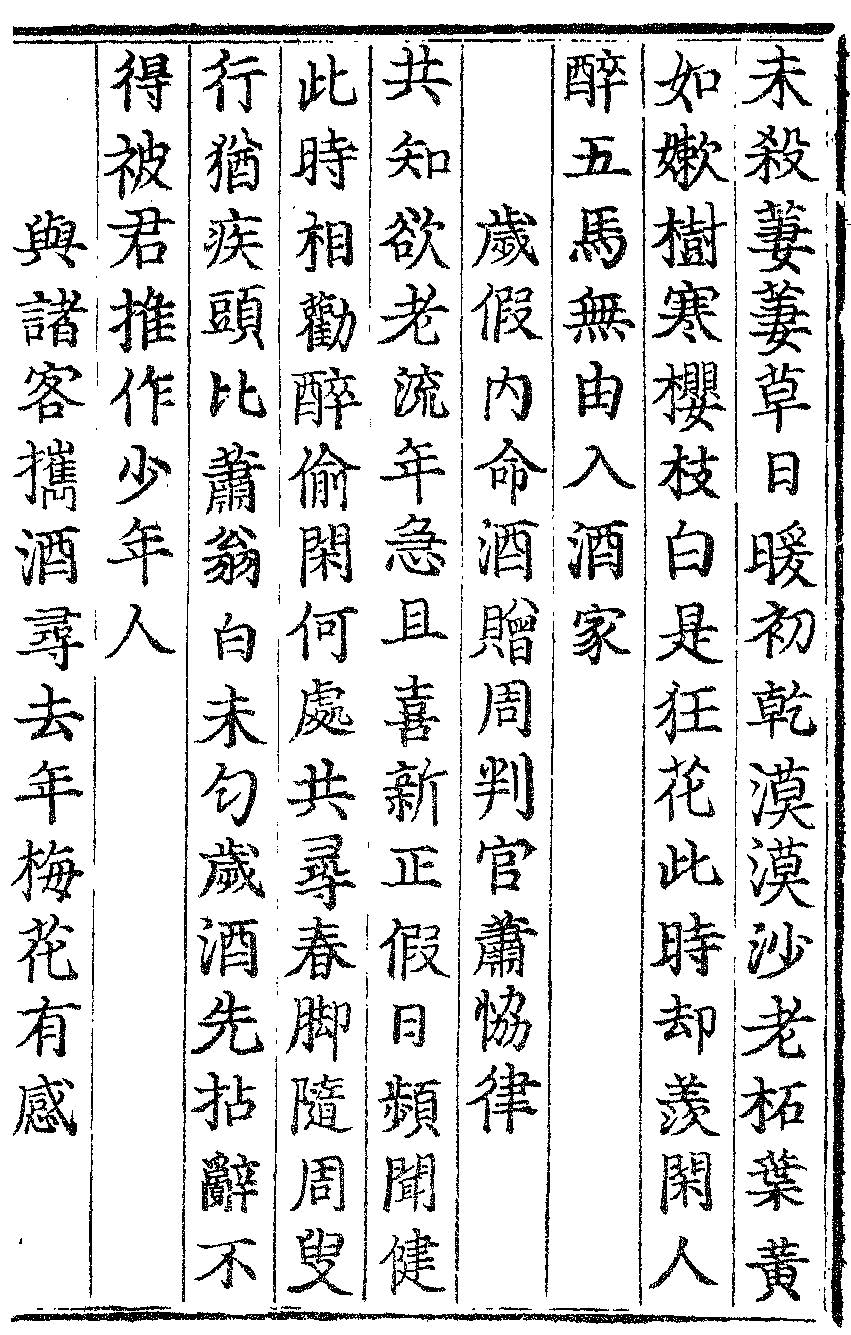 未殺萋萋草日暖初乾漠漠沙老柘葉黃
如嫰樹寒櫻枝白是狂花此時却羨閑人
醉五馬無由入酒家
歲假内命酒贈周判官蕭恊律
共知欲老流年急且喜新正假日頻聞健
此時相勸醉偷閑何處共尋春脚隨周叟
行猶疾頭比蕭翁白未匀歲酒先拈辭不
得被君推作少年人
與諸客攜酒尋去年梅花有感